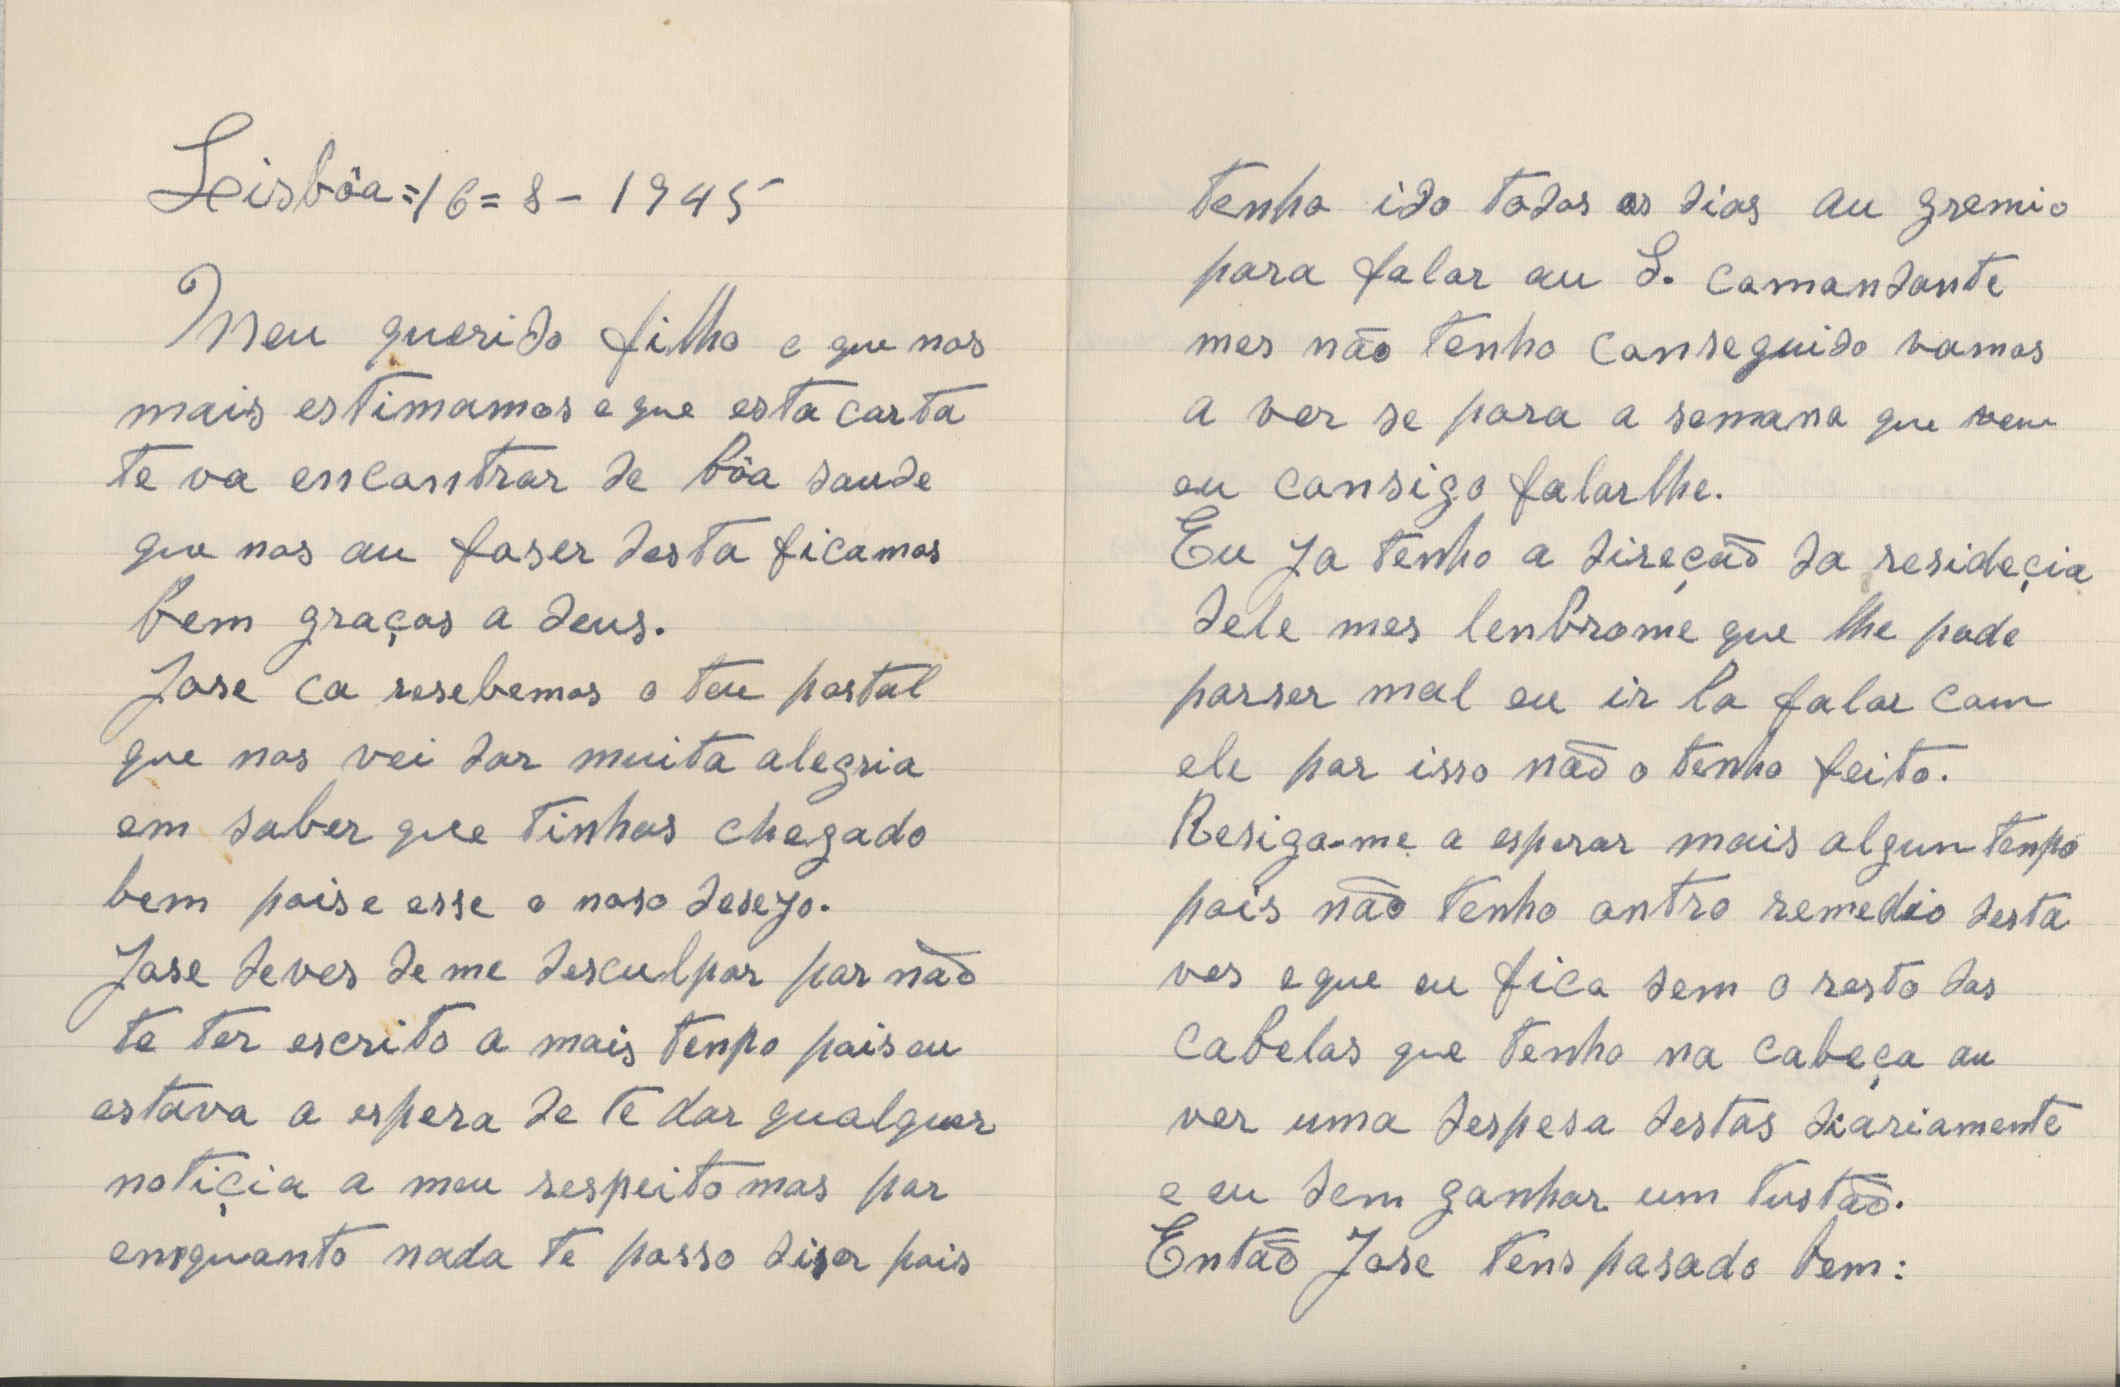 Lisbôa=16=8-1945
Meu querido filho e que nos
mais estimamos e que esta carta
te va encontrar de bôa saude
que nos au faser desta ficamos
bem graças a deus.
Jose ca resebemos o teu postal
que nos vei dar muita alegria
em saber que tinhas chegado
bem pois e esse o noso desejo.
Jose deves de me desculpar por não
te ter escrito a mais tenpo pois eu
estava a espera de te dar qualquer
notiçia a meu respeito mas por
enquanto nada te posso diser pois
tenho ido todos os dias au gremio
para falar au S. Comandante
mes não tenho conseguido vamos
a ver se para a semana que vem
eu consigo falarlhe.
Eu ja tenho a direção da resideçia
dele mes lenbrome que lhe pode
parser mal eu ir la falar com
ele por isso não o tenho feito.
Resigo-me a esperar mais algun tenpo
pois não tenho outro remedio desta
ves e que eu fico sem o resto dos
cabelos que tenho na cabeça au
ver uma despesa destas diariamente
e eu sem ganhar um tustão.
Então Jose tens pasado bem: